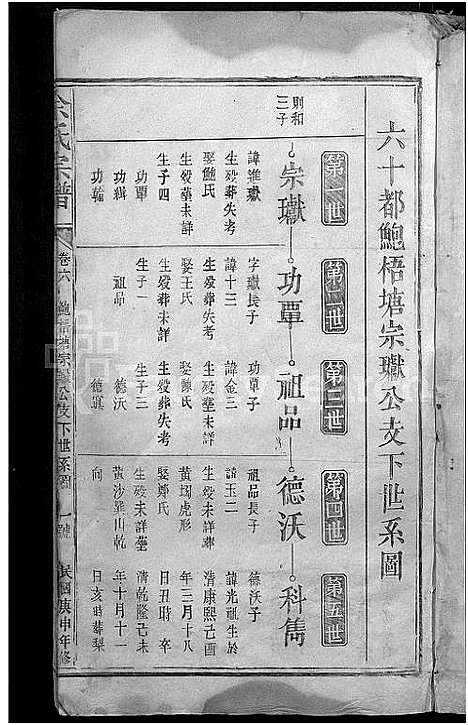 六十都鮑梧塘宗瓛公支下世系圖
第一世
第二世
第三世
第四世
第五世
則和三子
宗瓛
功覃
祖品
德沃
科儁
諱進瓛
生歿葬失考
娶鮑氏
生歿塟未詳
生子四
功覃
功緝
功輪
字瓛長子
諱十三
生歿葬失考
娶王氏
生歿葬未詳
生子一
祖品
功覃子
諱金三
生歿塟未詳
娶陳氏
生歿葬失考
生子三
德沃
德滇
祖品長子
諱玉二
黃墈虎形
娶鄭氏
生歿未詳塟
黃沙羅山乾
向
德沃子
諱光祖生於
清康熙己酉
年三月十八
日丑時卒
清乾隆己未
年十月十一
日亥時葬梨
余氏宗譜
卷六
鮑梧塘宗瓛公支下世系圖
一號
民國庚申年修